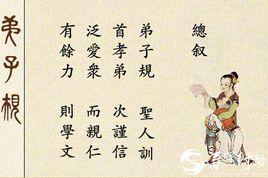 總叙
弟子規 聖人訓
首孝弟 次謹信
泛愛衆 而親仁
有餘力 則學文
弟子規